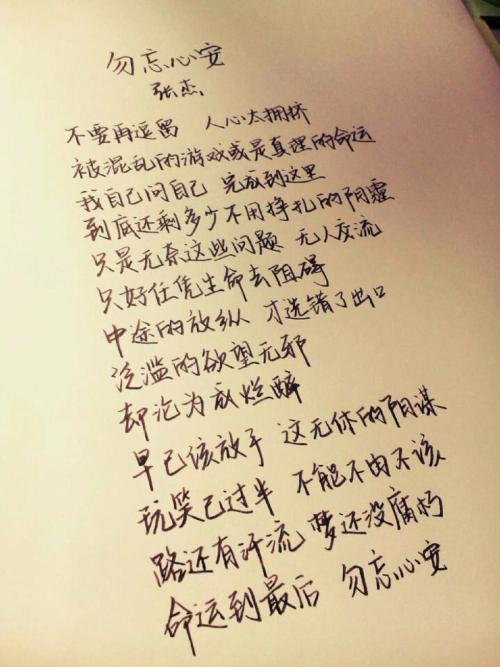 勿忘心安
张杰
不要再逗留 人心太拥挤
被混乱的游戏或是真理的命运
我自己问自己 完成到这里
到底还剩多少不用挣扎的阴霾
只是无奈这些问题 无人交流
只好任凭生命去阻碍
中途的放纵 才选错了出口
泛滥的欲望无邪
却沦为腐烂醉
早已该放手 这无休的阴谋
玩笑已过半 不能不由不该
路还有汗流 梦还没腐朽
命运到最后 勿忘心安